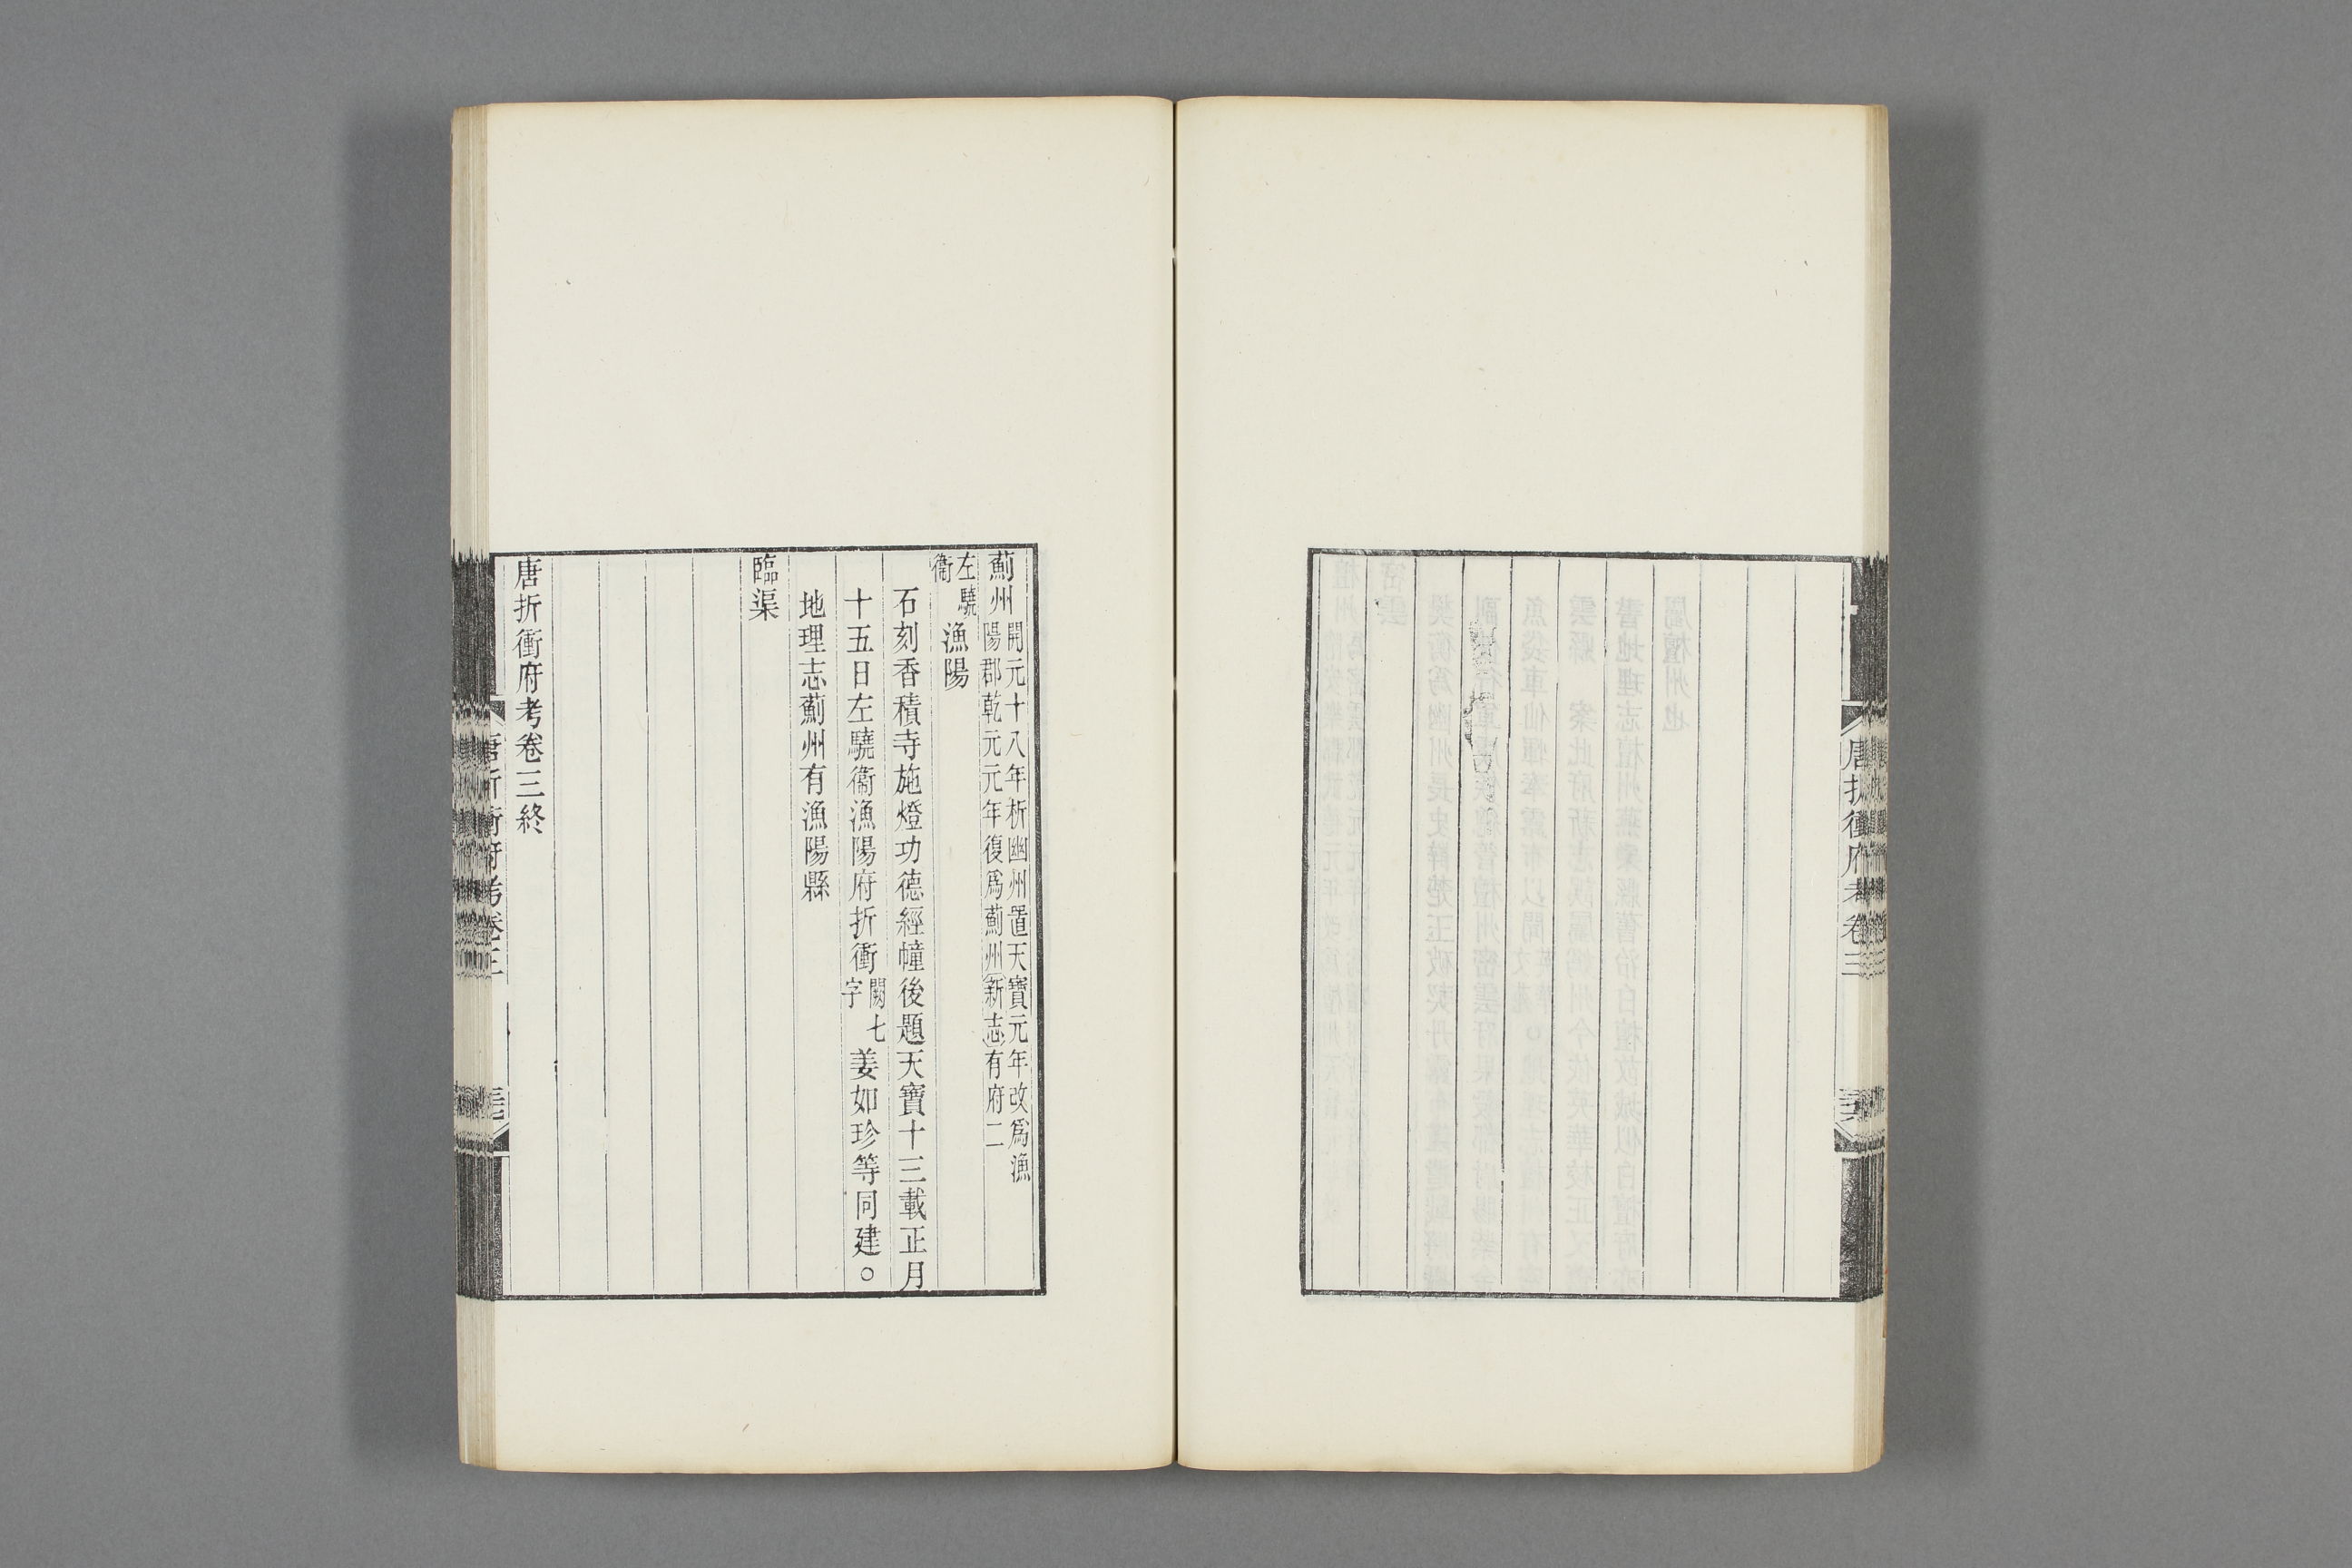 唐折衝府考卷三
薊州開元十八年析幽州置天寶元年改爲漁
陽郡乾元元年復爲薊州新志有府二
左驍衞漁陽
石刻香積寺施燈功德經幢後題天寶十三載正月
十五日左驍衞漁陽府折衝闕七字姜如珍等同建○
地理志薊州有漁陽縣
臨渠
唐折衝府考卷三終
唐折衝府考卷三